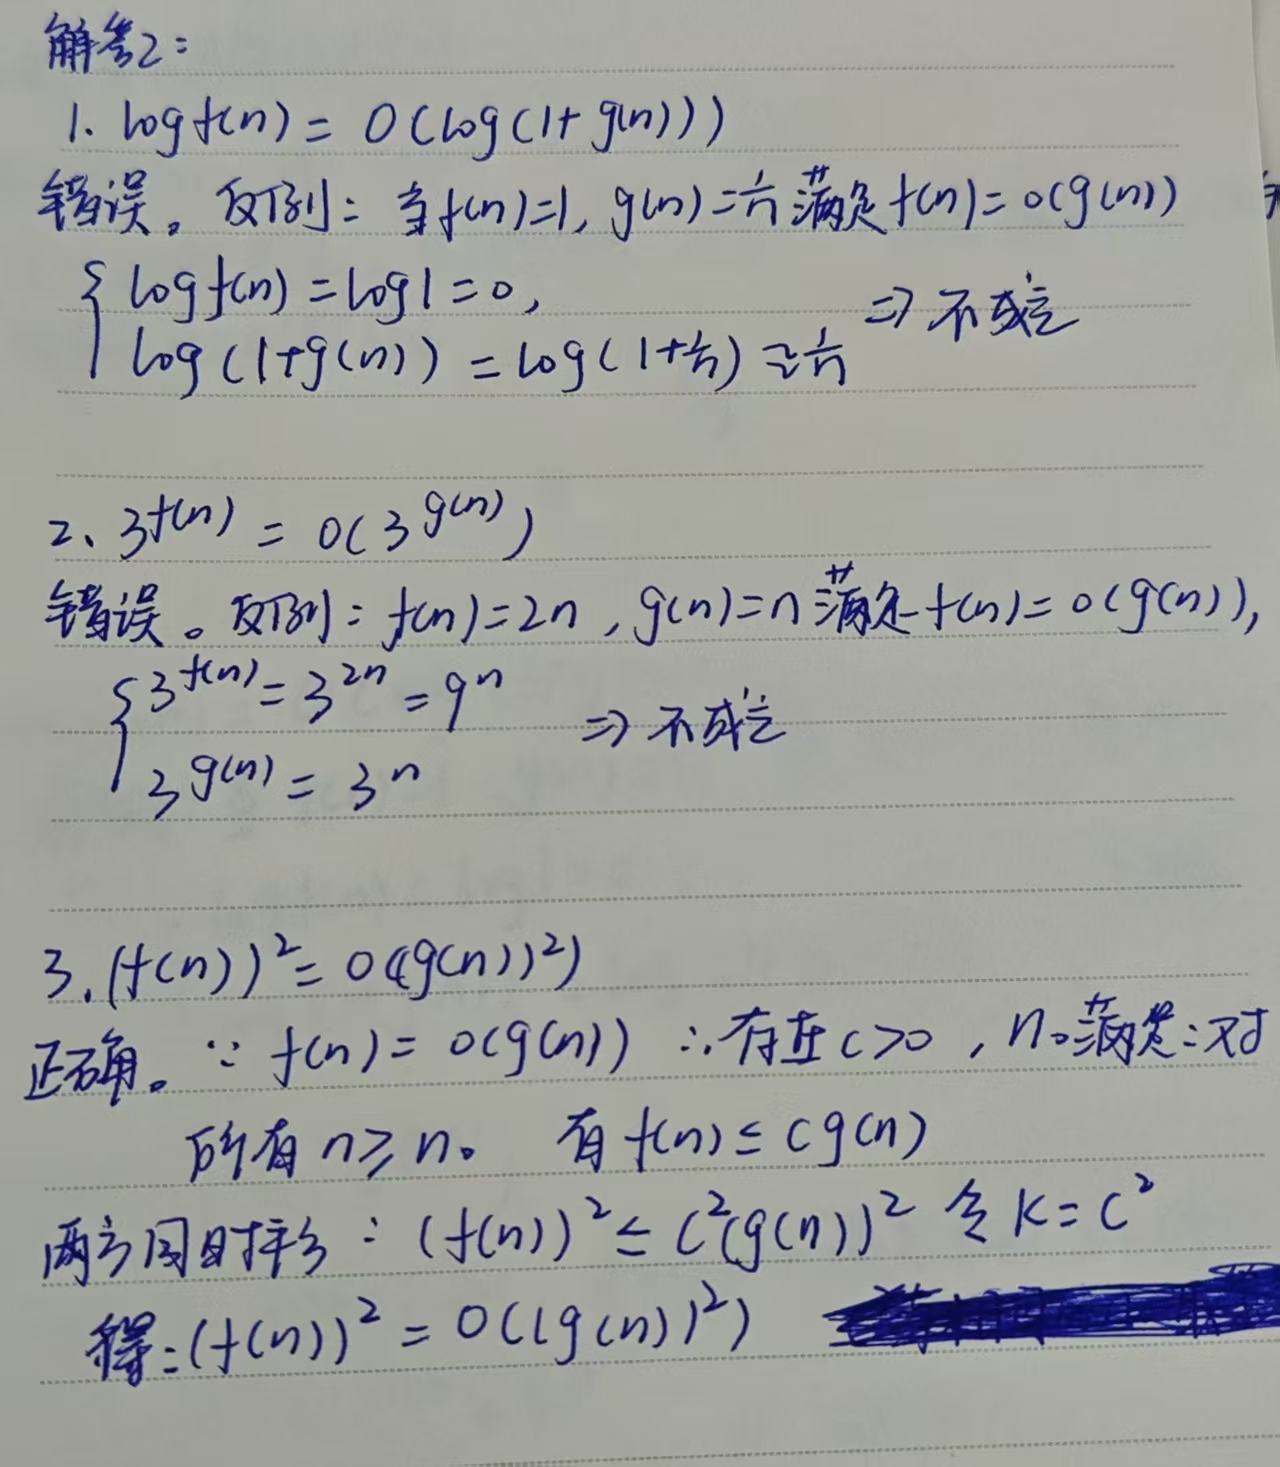 解答2:
1. log f(n) = O(log(1+g(n)))
错误。反例: 当f(n)=1, g(n)=1/n 满足 f(n)=o(g(n))
{ log f(n) = log1 = 0,
log(1+g(n)) = log(1+1/n) ≈ 1/n ⇒ 不成立
2、3^f(n) = O(3^g(n))
错误。反例: f(n)=2n, g(n)=n 满足 f(n)=o(g(n)),
{ 3^f(n) = 3^2n = 9^n ⇒ 不成立
3^g(n) = 3^n
3. (f(n))² = O((g(n))²)
正确。∵ f(n) = o(g(n)) ∴ 存在 c>0, n₀满足:对
所有 n≥n₀ 有 f(n) ≤ cg(n)
两方同时平方: (f(n))² ≤ c²(g(n))² 令 K=c²
得: (f(n))² = O((g(n))²)